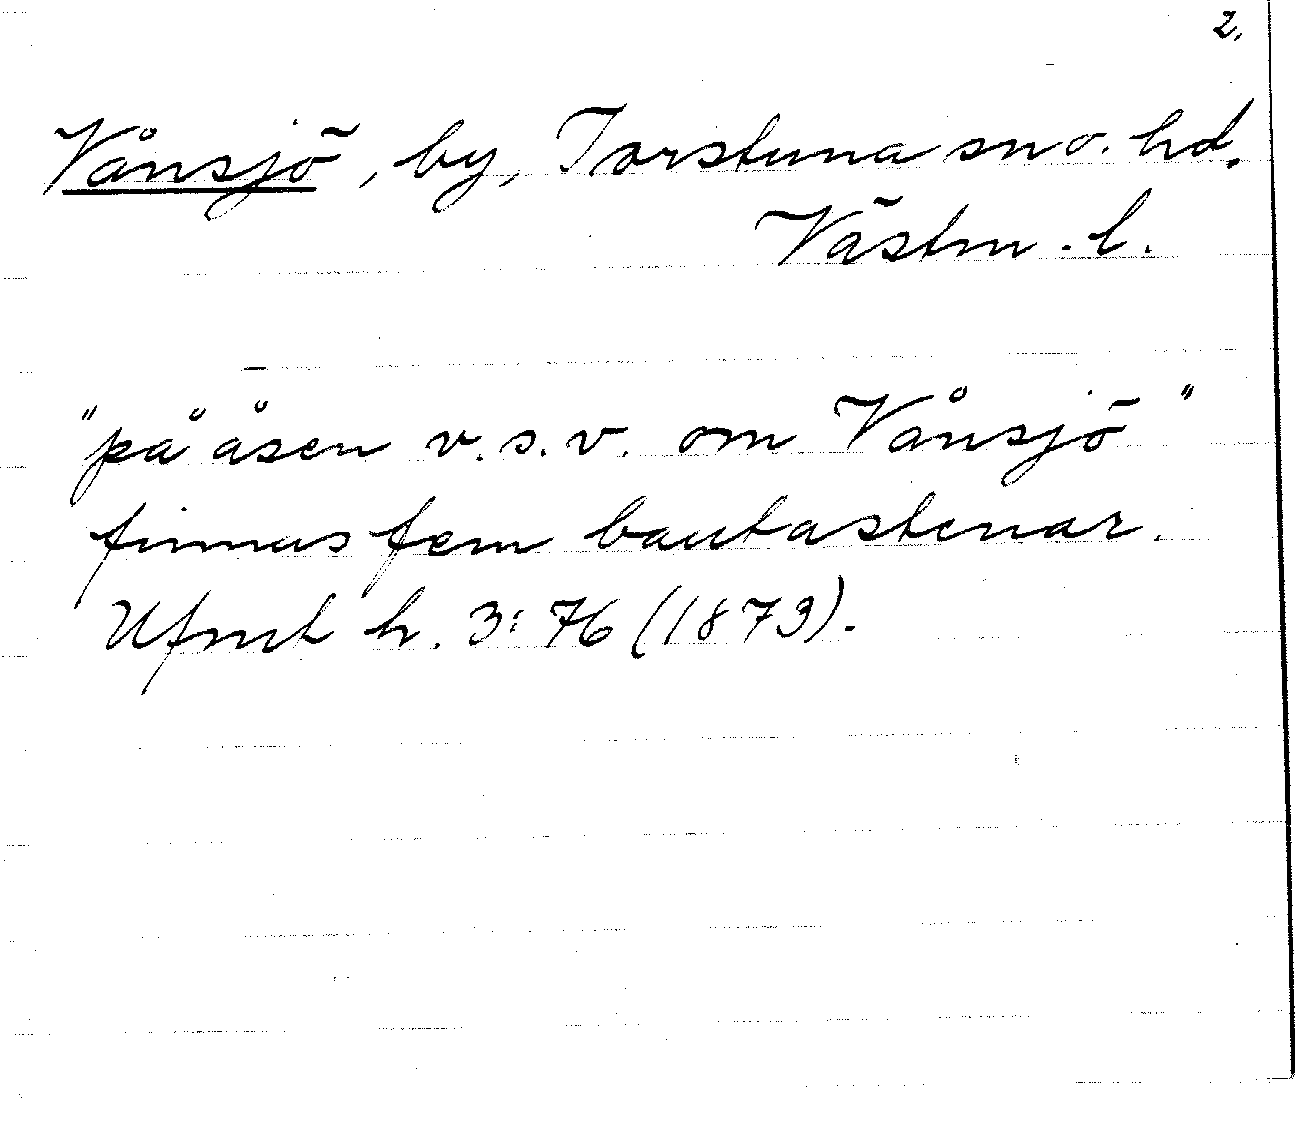 2.
Vånsjö, by, Torstuna sn o. hd,
Västm. l.
"på åsen v.s.v. om Vånsjö"
finnas fem bautastenar.
Ufmt h. 3:76 (1873).